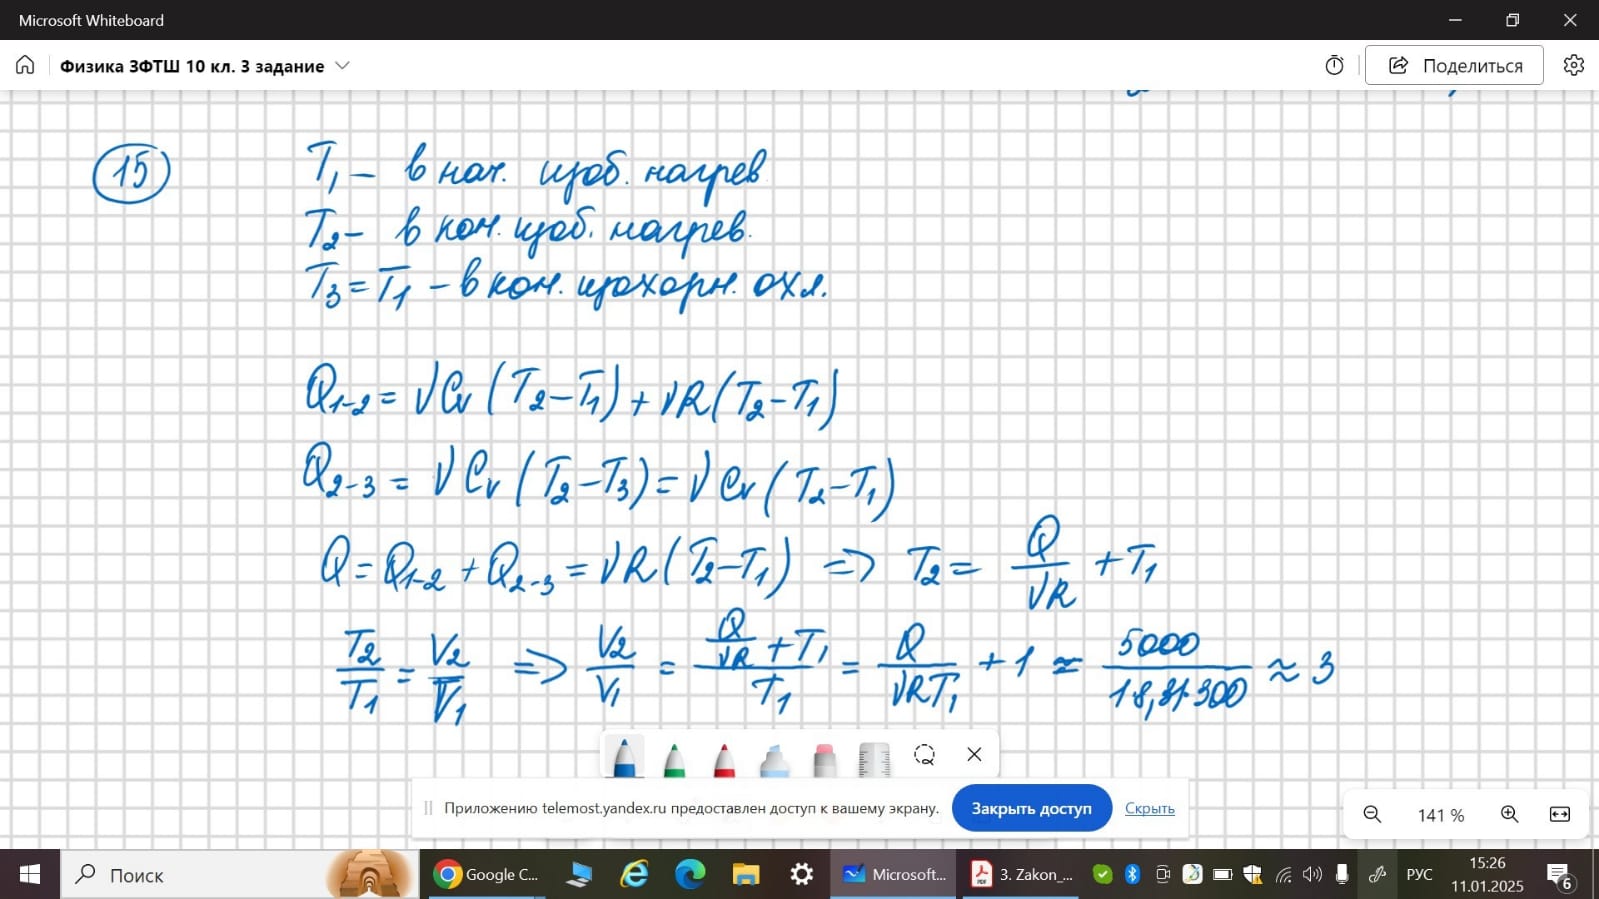 Microsoft Whiteboard
Физика ЗФТШ 10 кл. 3 задание
Поделиться
15
T₁ – в нач. изоб. нагрев.
T₂ – в кон. изоб. нагрев.
T₃ = T₁ – в кон. изохорн. охл.
Q₁₋₂ = νCv (T₂ – T₁) + νR (T₂ – T₁)
Q₂₋₃ = νCv (T₂ – T₃) = νCv (T₂ – T₁)
Q = Q₁₋₂ + Q₂₋₃ = νR (T₂ – T₁) => T₂ = Q/νR + T₁
T₂/T₁ = V₂/V₁ => V₂/V₁ = (Q/νR + T₁)/T₁ = Q/νRT₁ + 1 ≈ 5000/1·8,31·300 ≈ 3
Приложению telemost.yandex.ru предоставлен доступ к вашему экрану.
Закрыть доступ
Скрыть
141 %
Поиск
Google C...
Microsoft...
3. Zakon_...
РУС
15:26
11.01.2025
6